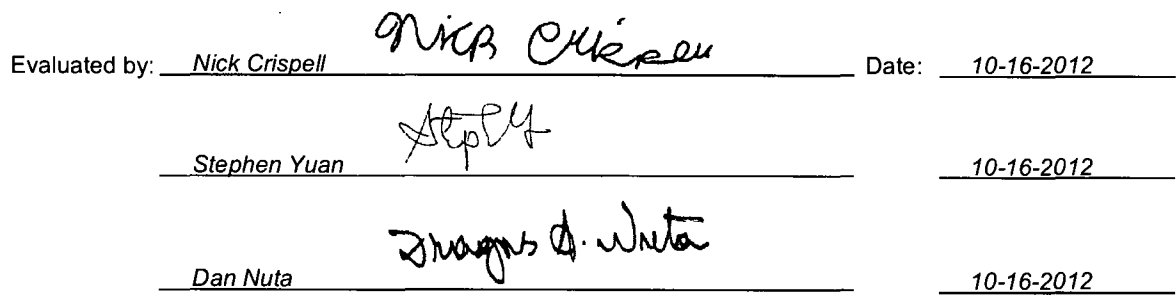 Evaluated by: Nick Crispell Nick Crispell Date: 10-16-2012
Stephen Yuan 10-16-2012
Dan Nuta Dragos A. Nuta 10-16-2012